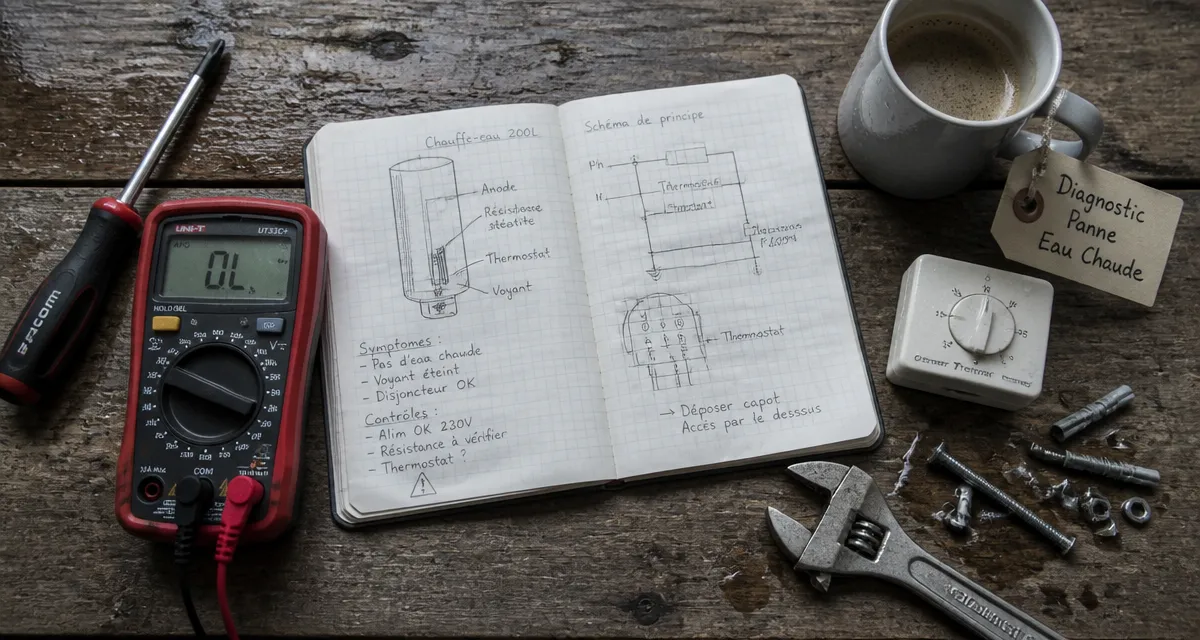 Chauffe-eau 200L
Anode
Résistance
stéatite
Thermostat
Voyant
Symptomes :
- Pas d'eau chaude
- Voyant éteint
- Disjoncteur OK
Contrôles :
- Alim OK 230V
- Résistance à vérifier
- Thermostat ?
Schéma de principe
Ph
N
Thermostat
→ Déposer capot
Accès par le desssus
UNI-T
UT33C+
OL
HOLD
COM
facom
Diagnostic
Panne
Eau Chaude